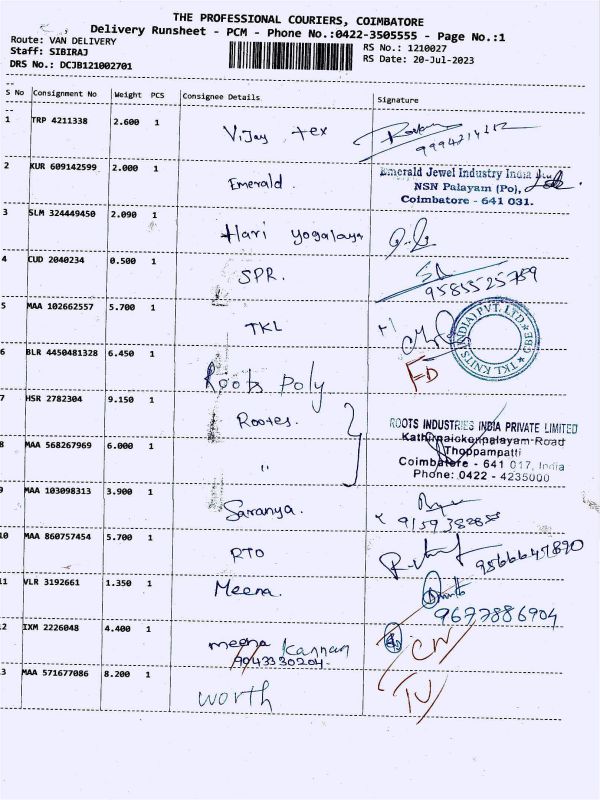 THE PROFESSIONAL COURIERS, COIMBATORE
Delivery Runsheet - PCM - Phone No.:0422-3505555 - Page No.:1
Route: VAN DELIVERY
Staff: SIBIRAJ
DRS No.: DCJB121002701
RS No.: 1210027
RS Date: 20-Jul-2023
S No Consignment No Weight PCS Consignee Details Signature
1 TRP 4211338 2.600 1 Vijay tex
2 KUR 609142599 2.000 1 Emerald. Emerald Jewel Industry India
NSN Palayam (Po),
Coimbatore - 641 031.
3 SLM 324449450 2.090 1 Hari yogalaya
4 CUD 2040234 0.500 1 SPR.
9585525759
5 MAA 102662557 5.700 1 TKL
TKL KNITS (INDIA) PVT. LTD
6 BLR 4450481328 6.450 1 Roots poly FD
7 HSR 2782304 9.150 1 Rootes. ROOTS INDUSTRIES INDIA PRIVATE LIMITED
Kathirnaickenpalayam Road
Thoppampatti
8 MAA 568267969 6.000 1 " Coimbatore - 641 017, India
Phone: 0422 - 4235000
9 MAA 103098313 3.900 1 Saranya.
10 MAA 860757454 5.700 1 RTO
11 VLR 3192661 1.350 1 Meena.
9677886904
12 IXM 2226048 4.400 1 meena Kannan CN
9043330204
13 MAA 571677086 8.200 1 worth